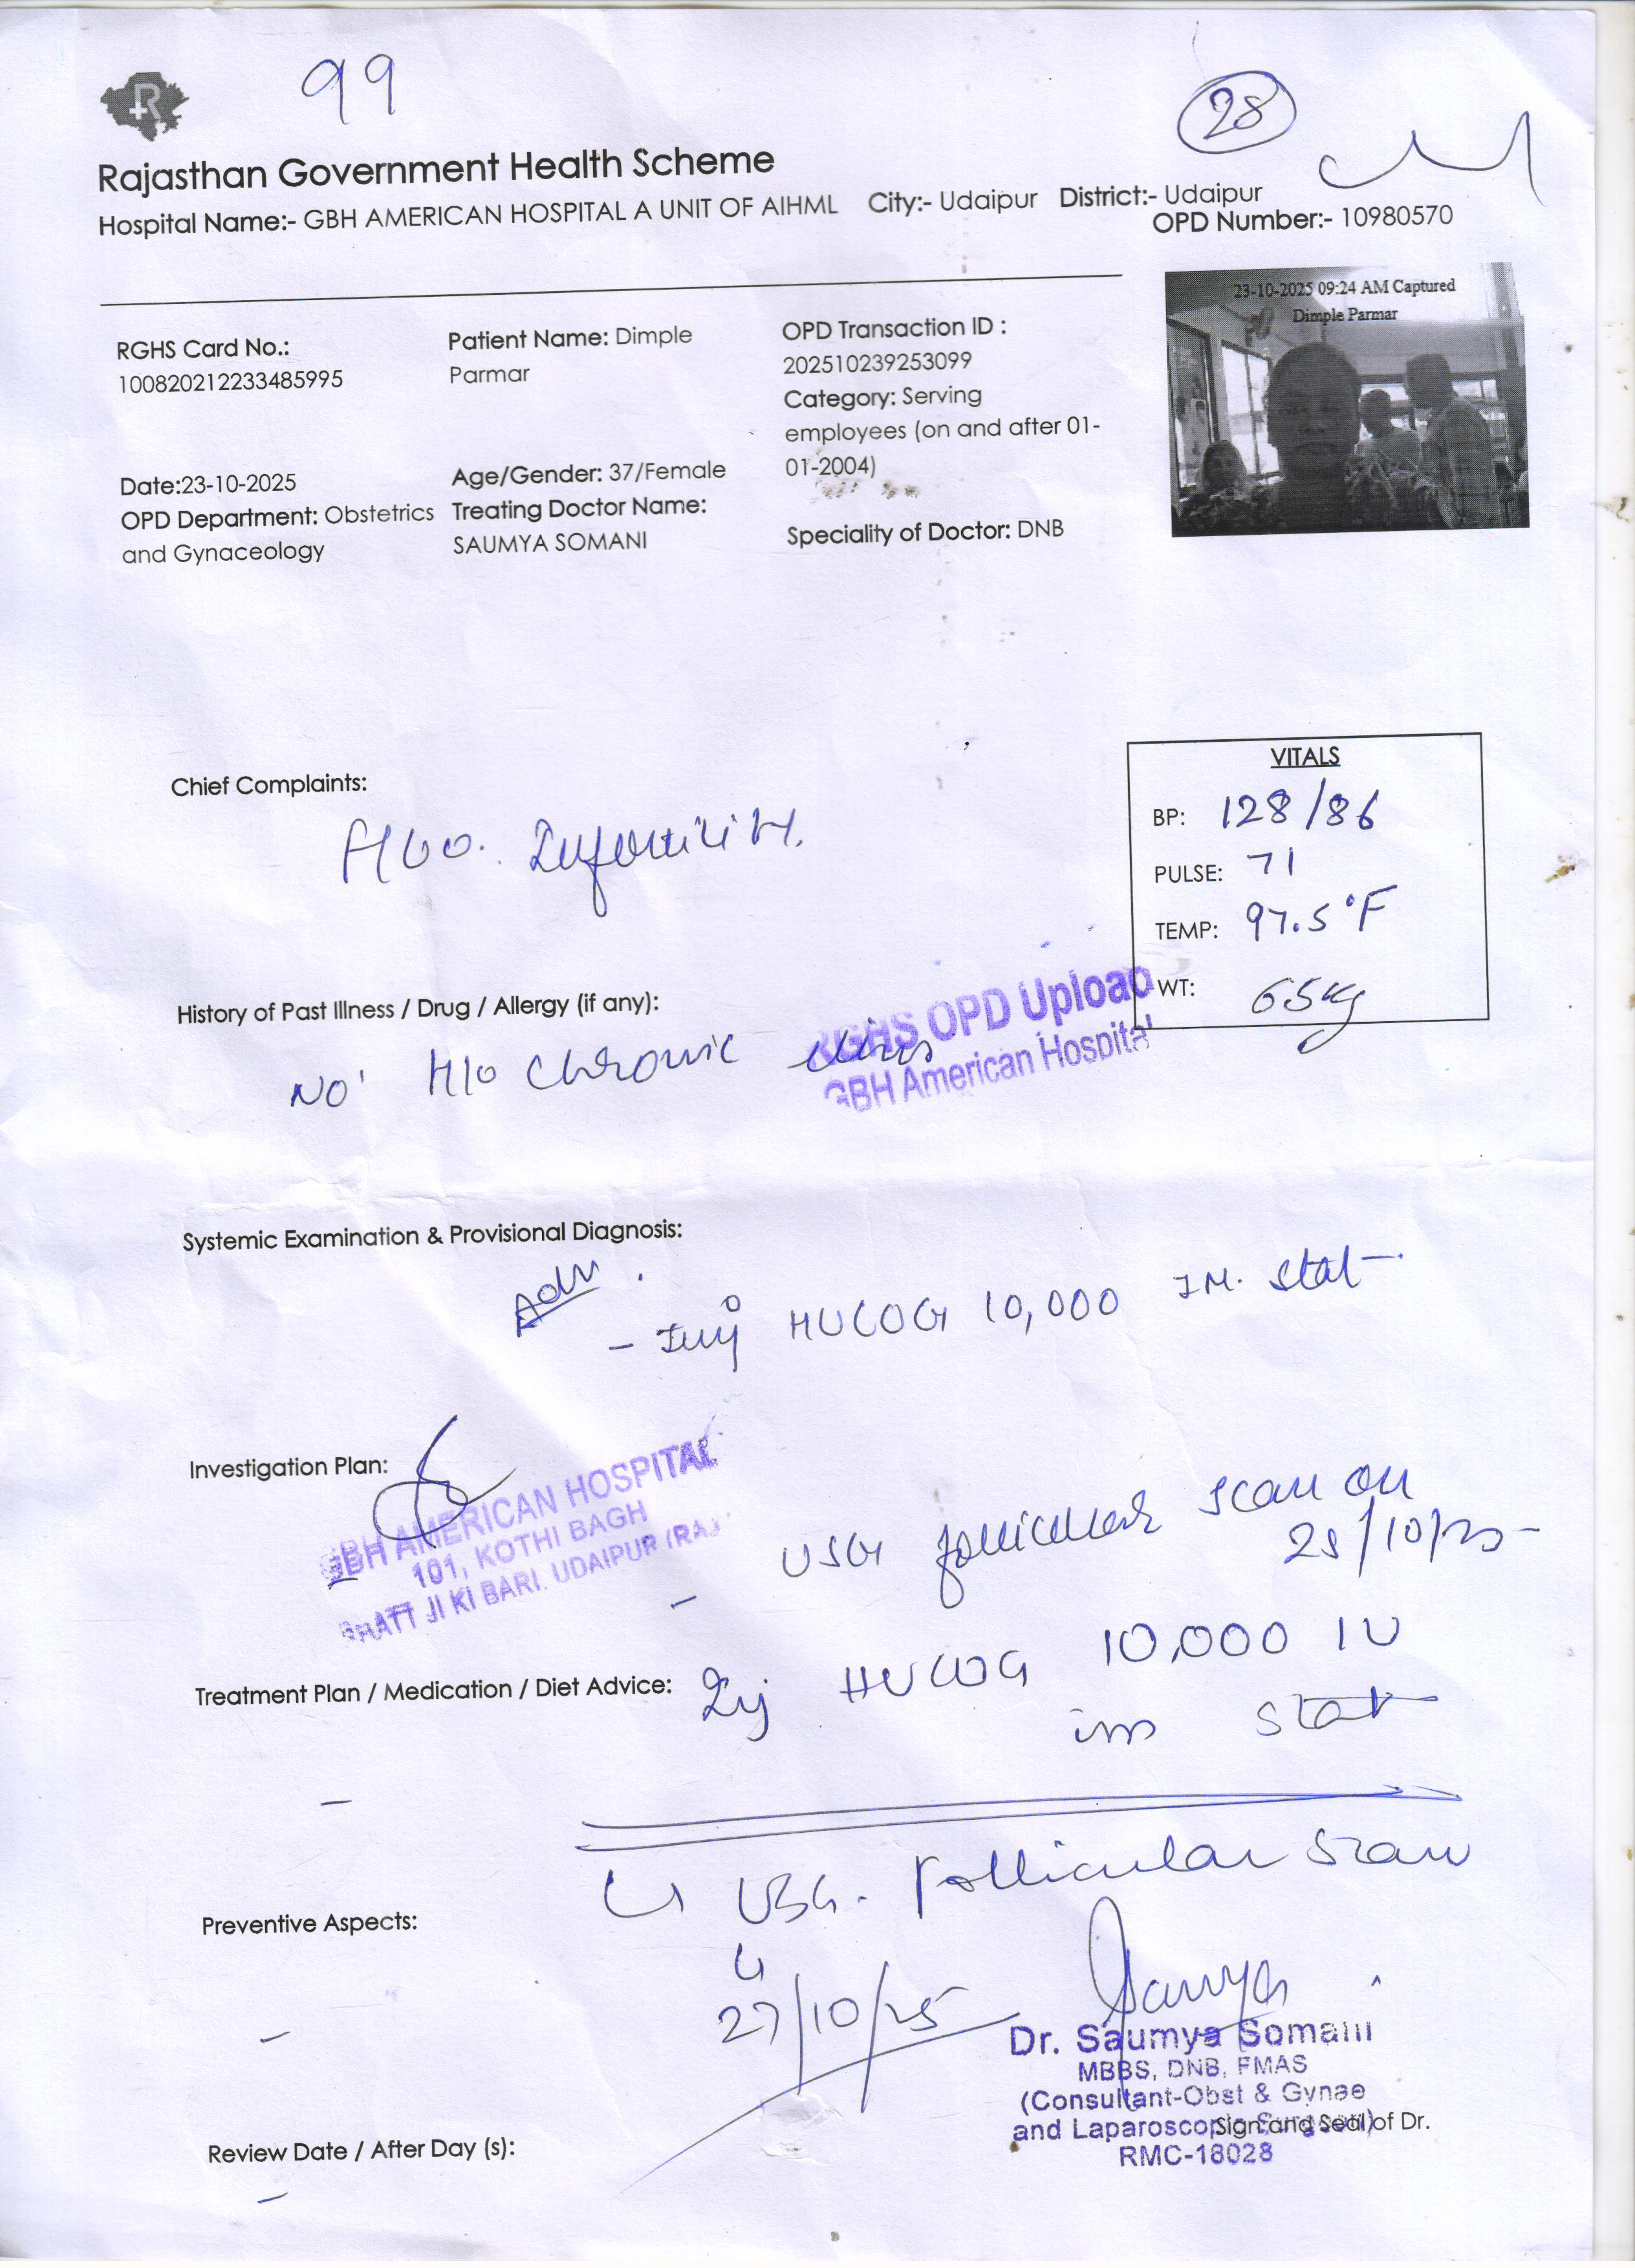 99
28
Rajasthan Government Health Scheme
Hospital Name:- GBH AMERICAN HOSPITAL A UNIT OF AIHML City:- Udaipur District:- Udaipur
OPD Number:- 10980570
23-10-2025 09:24 AM Captured
Dimple Parmar
RGHS Card No.:
100820212233485995
Patient Name: Dimple
Parmar
OPD Transaction ID :
202510239253099
Category: Serving
employees (on and after 01-
01-2004)
Date:23-10-2025
Age/Gender: 37/Female
OPD Department: Obstetrics
and Gynaceology
Treating Doctor Name:
SAUMYA SOMANI
Speciality of Doctor: DNB
VITALS
BP: 128/86
PULSE: 71
TEMP: 97.5°F
WT: 65kg
Chief Complaints:
Infertility.
RGHS OPD Upload
GBH American Hospital
History of Past Illness / Drug / Allergy (if any):
NO H/o Chronic
Systemic Examination & Provisional Diagnosis:
Adv.
- Inj HUCOG 10,000 I.M. Stat
Investigation Plan:
GBH AMERICAN HOSPITAL
101, KOTHI BAGH
BHATT JI KI BARI. UDAIPUR (RAJ
- USG follicular scan on
25/10/25
Treatment Plan / Medication / Diet Advice: Inj HUCOG 10,000 IU
im stat
USG. Follicular Scan
27/10/25
Preventive Aspects:
Saumya
Dr. Saumya Somani
MBBS, DNB, FMAS
(Consultant-Obst & Gynae
and Laparoscopic Surgeon)
Sign and Seal of Dr.
RMC-18028
Review Date / After Day (s):